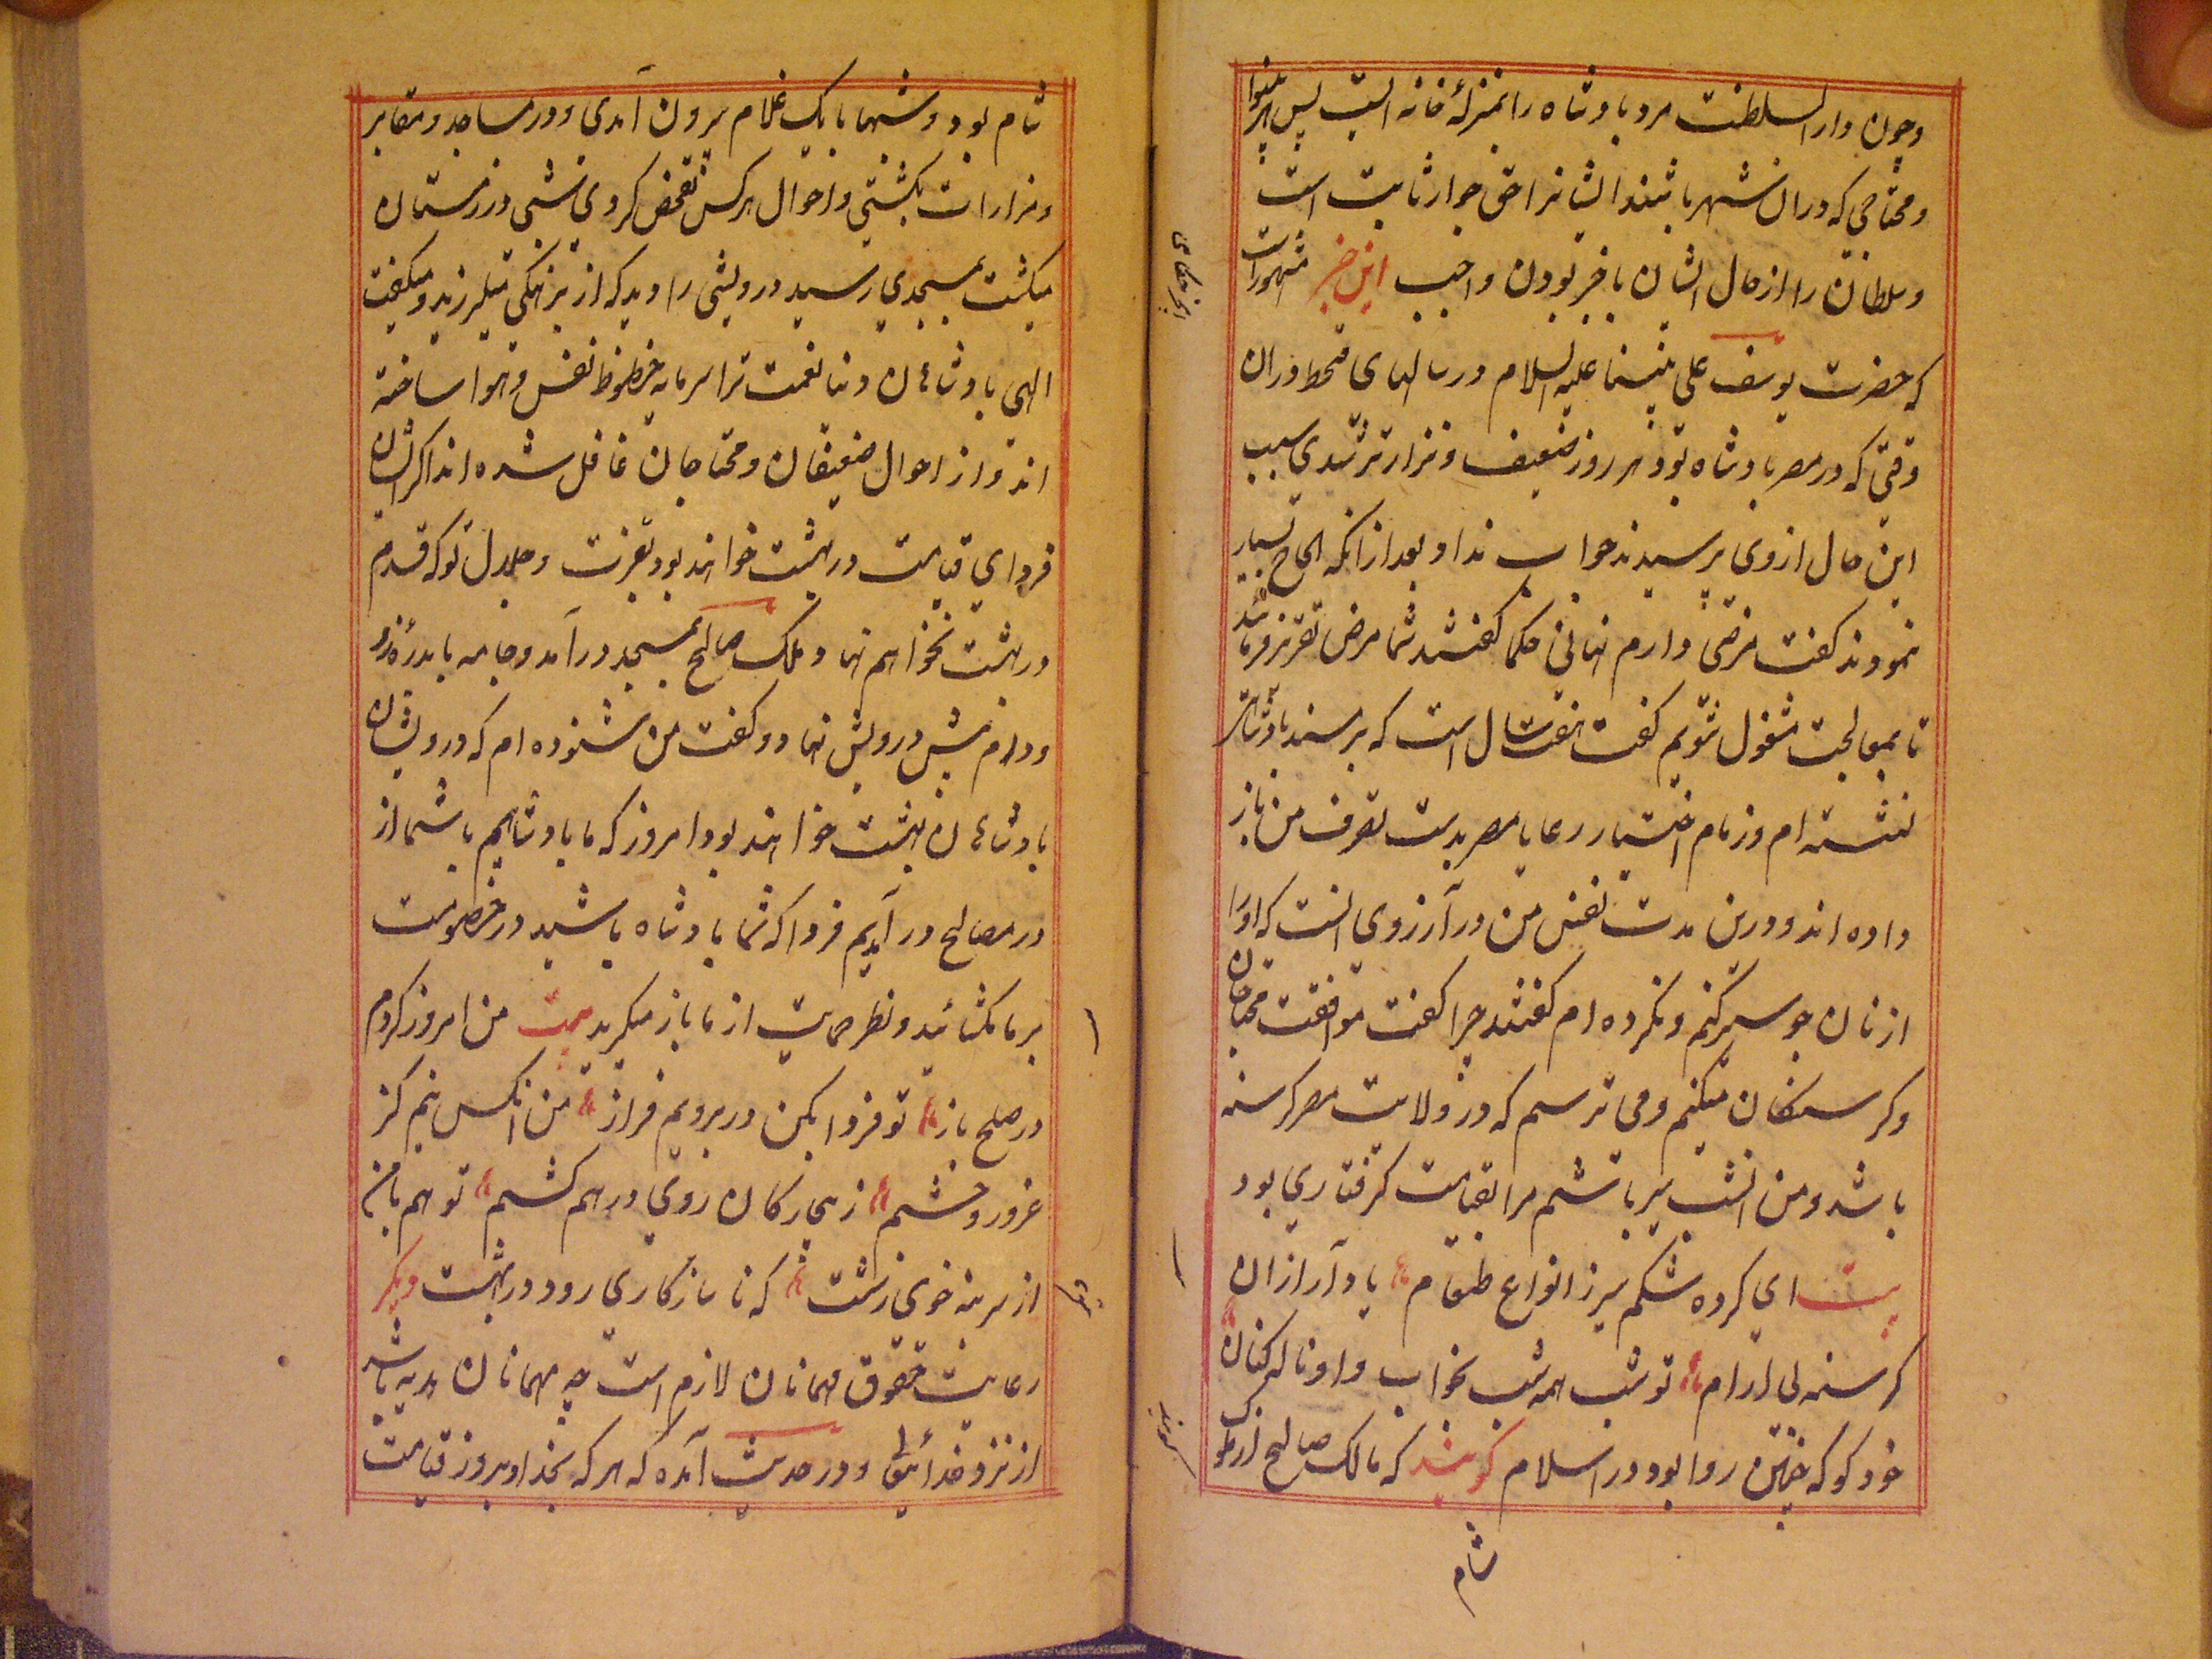 وچون دار السلطنت مرد بادشاه را بمنزلهٔ خانه است پس هر بینوا
و محتاجی که دران شهر باشند ایشانرا حق جوار ثابت است
و سلطان را از حال ایشان با خبر بودن واجب این خبر مشهور است
که حضرت یوسف علی نبینا علیه السلام در سالهای قحط دران
وقتی که در مصر بادشاه بود هر روز ضعیف و نزار تر شدی سبب
این حال از وی پرسیدند جواب نداد بعد از انکه الحاح بسیار
نمودند گفت مرضی دارم نهانی حکما گفتند شما مرض تقریر فرمائید
تا بمعالجت مشغول شویم گفت هفت سال است که بر مسند بادشاهی
نشسته ام و زمام اختیار رعایا مصر بدست تصرف من باز
داده اند و درین مدت نفس من در آرزوی انست که او را
از نان جو سیر کنم و نکرده ام گفتند چرا گفت موافقت محتاجان
و گرسنکان میکنم و می ترسم که در ولایت مصر کرسنه
باشد و من امشب سیر باشم مرا بقیامت کرفتاری بود
بیت ای کرده شکم سیر ز انواع طعام یاد آر ازان
کرسنه بی آرام تو شب همه شب بخواب و او ناله کنان
خود کو که چنین روا بود در اسلام کویند که مالک صالح از ملوک
شام
شام بود و شبها با یک غلام بیرون آمدی و در مساجد و مقابر
و مزارات بکشتی و احوال هر کس تفحص کردی شبی در زمستان
میکشت بمسجدی رسید درویشی را دید که از برهنکی میلرزید و میکفت
الهی بادشاهان دنیا نعمت ترا سرمایه حظوظ نفس و هوا ساخته
اند و از احوال ضعیفان و محتاجان غافل شده اند اکر ایشان
فردای قیامت در بهشت خواهند بود بعزت و جلال تو که قدم
در بهشت نخواهم نهاد ملک صالح بمسجد در آمد و جامه با بدرهٔ زر
و درم پیش درویش نهاد و گفت من شنوده ام که درویشان
بادشاهان بهشت خواهند بود امروز که ما بادشاهیم با شما از
در مصالح در آمدیم فردا که شما بادشاه باشید در خصومت
بر ما مکشائید و نظر حمایت از ما باز میکیرید بیت من امروز کردم
در صلح باز تو فردا مکن در برویم فراز من انکس نیم کز
غرور و حشم ز بیچارکان روی در هم کشم تو هم با من
از سر بنه خوی زشت که ناسازکاری رود در بهشت دیکر
رعایت حقوق مهمانان لازم است چه مهمانان هدیه باشد
از نزد خدایتعالی و در حدیث آمده که هر که بخدا و بروز قیامت